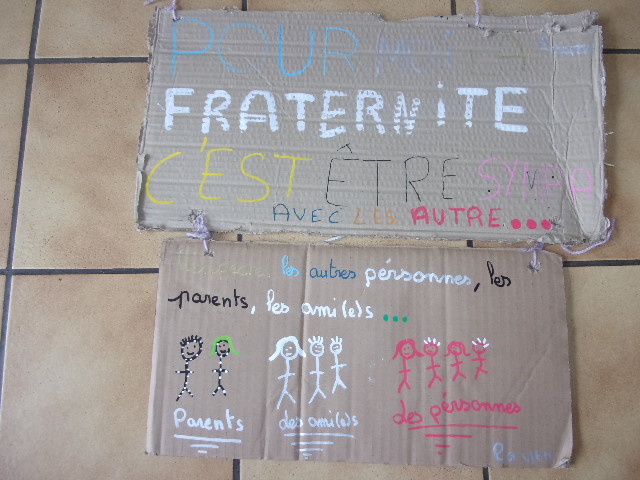 POUR MOI
FRATERNITE
C'EST ÊTRE SYMPA
AVEC LES AUTRE...
les autres pérsonnes, les
parents, les ami(e)s ...
Parents des ami(e)s des pérsonnes